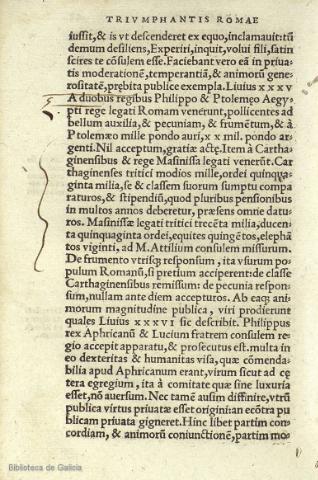 TRIVMPHANTIS ROMAE
iussit, & is vt descenderet ex equo, inclamauit: tũ
demum desiliens, Experiri, inquit, volui fili, satin
scires te cõsulem esse. Faciebant vero eã in priua-
tis moderationẽ, temperantiã, & animorũ gene-
rositatẽ, prębita publice exempla. Liuius XXXV
A duobus regibus Philippo & Ptolemęo Aegy-
pti rege legati Romam venerunt, pollicentes ad
bellum auxilia, & pecuniam, & frumẽtum, & à
Ptolemæo mille pondo auri, x x mil. pondo ar-
genti. Nil acceptum, gratiæ actę. Item à Cartha-
ginensibus & rege Masinissa legati venerũt. Car
thaginenses tritici modios mille, ordei quinqua-
ginta milia, se & classem suorum sumptu compa
raturos, & stipendiũ, quod pluribus pensionibus
in multos annos deberetur, præsens omne datu-
ros. Masinissæ legati tritici trecẽta milia, ducen-
ta quinquaginta ordei, equites quingẽtos, elephã
tos viginti, ad M. Attilium consulem missurum.
De frumento vtrisq; responsum, ita vsurum po-
pulum Romanũ, si pretium acciperent: de classe
Carthaginensibus remissum: de pecunia respon-
sum, nullam ante diem accepturos. Ab eaq; ani-
morum magnitudine publica, viri prodierunt
quales Liuius XXXVI sic describit. Philippus
rex Aphricanũ & Lucium fratrem consulem re-
gio accepit apparatu, & prosecutus est. multa in
eo dexteritas & humanitas visa, quæ cõmenda-
bilia apud Aphricanum erant, virum sicut ad cę
tera egregium, ita à comitate quæ sine luxuria
esset, nõ auersum. Nec tamẽ ausim diffinire, vtrũ
publica virtus priuatæ esset origini: an ecõtra pu
blicam priuata gigneret. Hinc libet partim con-
cordiam, & animorũ coniunctionẽ, partim mo-
Biblioteca de Galicia